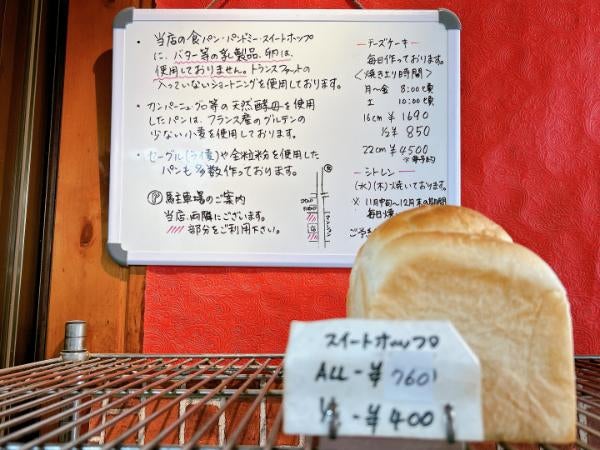 ・ 当店の食パン・パンドミー・スイートホップ
に、バター等の乳製品、卵は、
使用しておりません。トランスファットの
入っていないショートニングを使用しております。
・ カンパーニュ、グロ等の天然酵母を使用
したパンは、フランス産のグルテンの
少ない小麦を使用しております。
・ セーグル(ライ麦)や全粒粉を使用した
パンも多数作っております。
Ⓟ 駐車場のご案内
当店、両隣にございます。
部分をご利用下さい。
ーチーズケーキー
毎日作っております。
〈焼き上り時間〉
月〜金 8:00頃
土 10:00頃
16cm ¥1690
½ ¥850
22cm ¥4500
※要予約
ーシトレンー
(水)(木)焼いております。
※ 11月中旬〜12月末の期間
毎日焼
ご予
スイートホップ
ALL-¥760
½-¥400